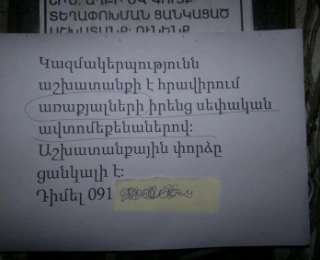 ՏԵՂԱՓՈԽՄԱՆ ՑԱՆԿԱՑԱԾ
ԱՇԽԱՏԱՆՔ: ՈՒՆԵՆՔ
Կազմակերպությունն
աշխատանքի է հրավիրում
առաքյալների իրենց սեփական
ավտոմեքենաներով:
Աշխատանքային փորձը
ցանկալի է:
Դիմել 091